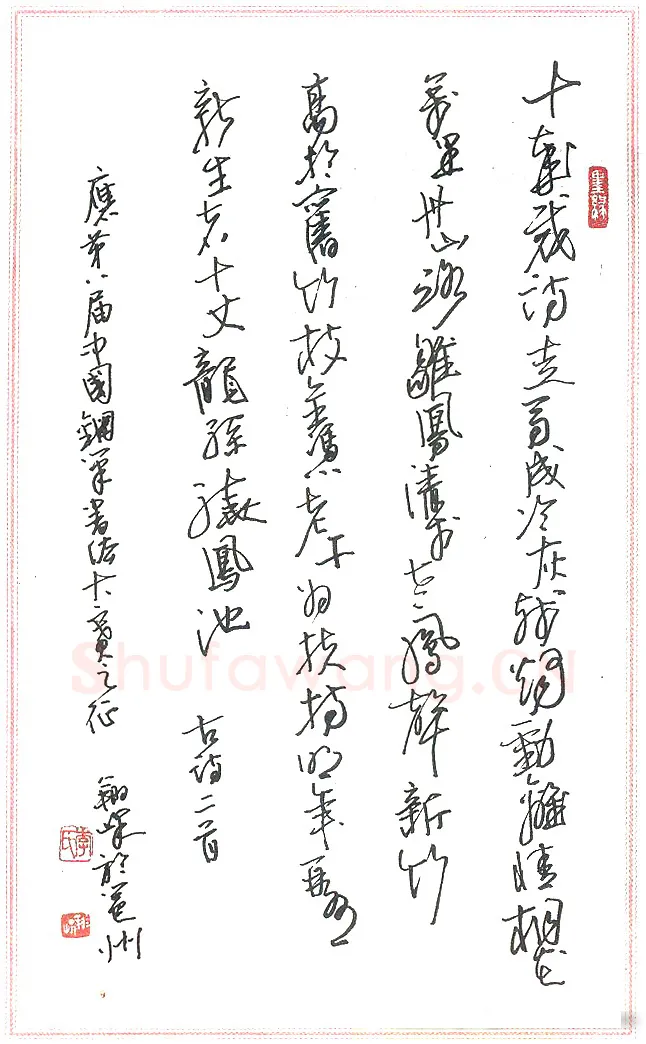 十歲裁詩走馬成冷灰殘燭動離情桐花
萬里丹山路雛鳳清於老鳳聲新竹
高於舊竹枝全憑老干為扶持明年再有
新生者十丈龍孫繞鳳池 古詩二首
應第八届中國鋼筆書法大賽之征 於邕州
李氏
Shufawang.CN